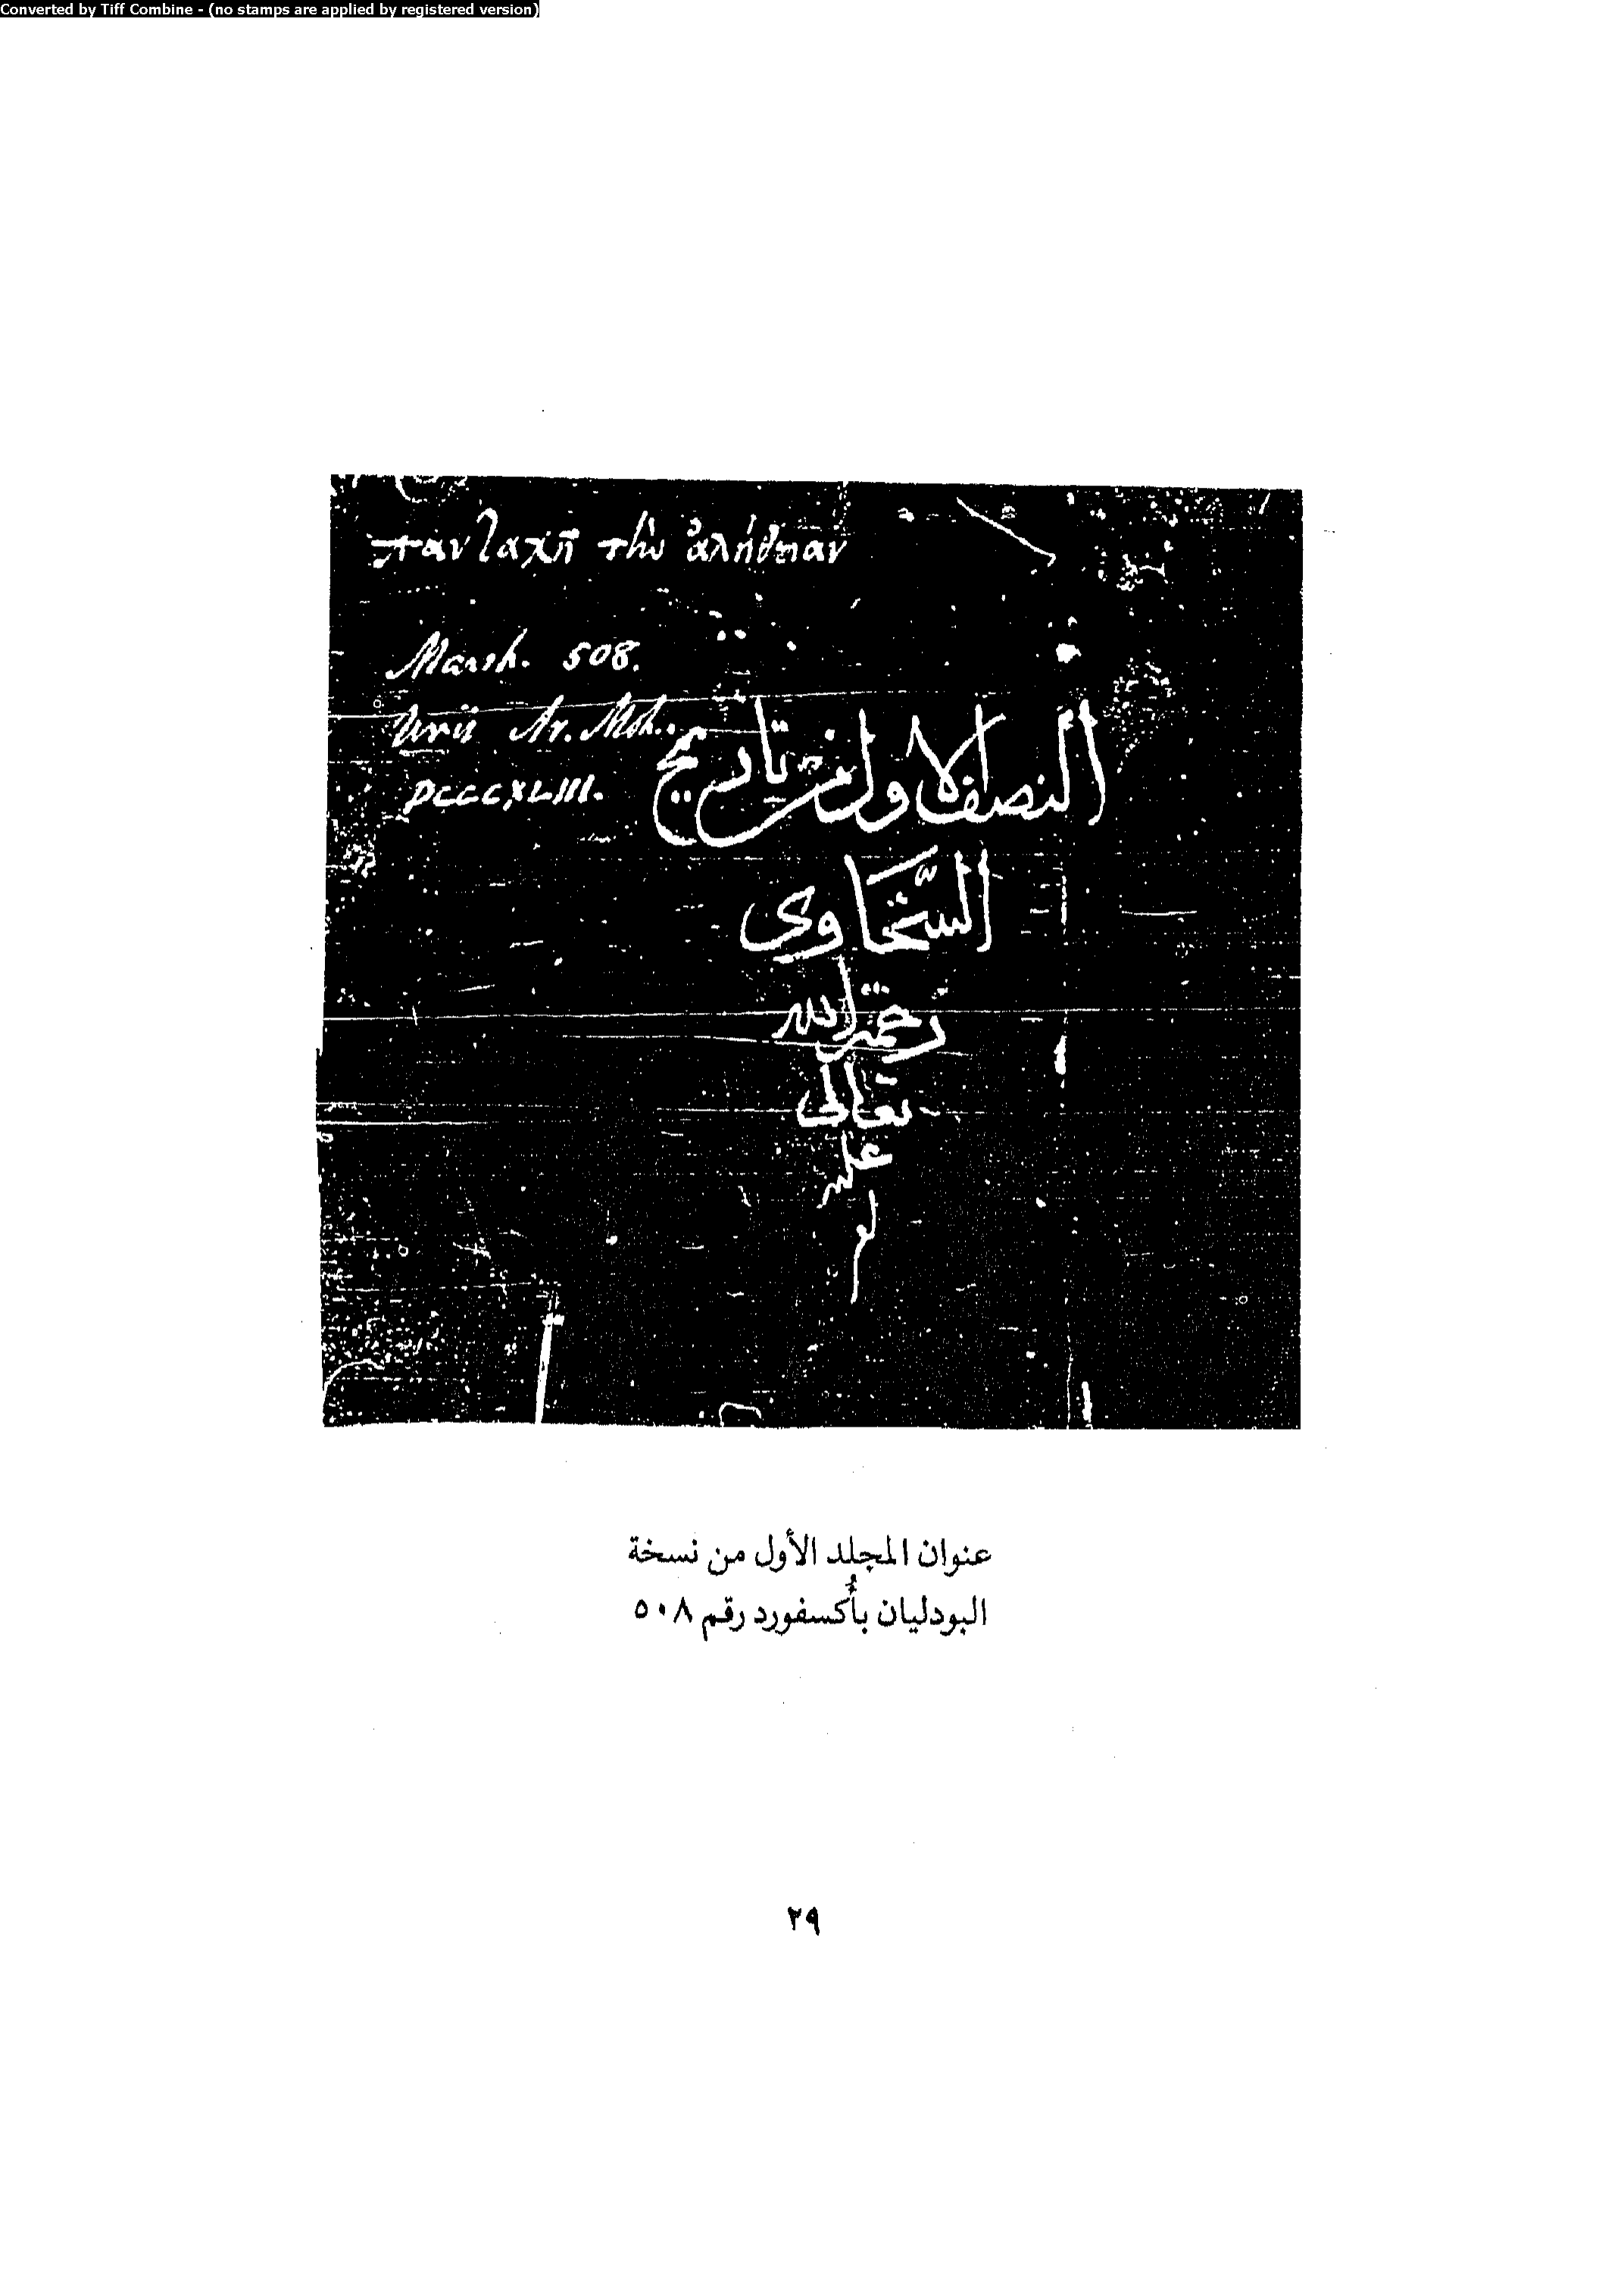 Converted by Tiff Combine - (no stamps are applied by registered version)
πανταχῆ τὴν ἀλήθειαν
Marsh. 508.
Urii Ar. Moh.
DCCCXLIII.
النصف الاول من تاريخ
السَّخَاوى
رحمة الله
تعالى
عليه
عنوان المجلد الأول من نسخة
البودليان بأكسفورد رقم ٥٠٨
٢٩